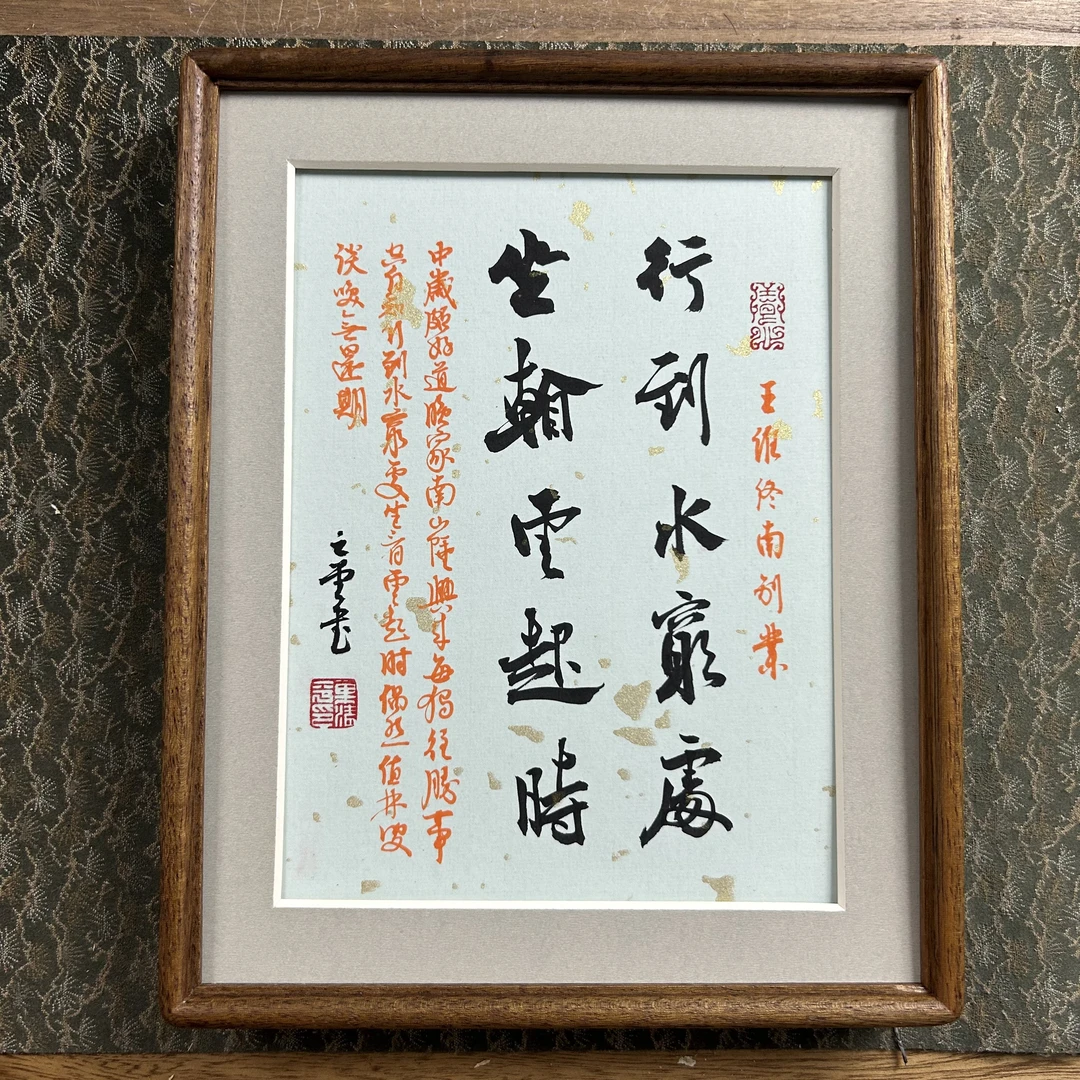 王維终南别業
行到水窮處
坐看雲起時
中歲頗好道晚家南山陲興来每獨往勝事
空自知行到水窮處坐看雲起时偶然值林叟
談笑無還期